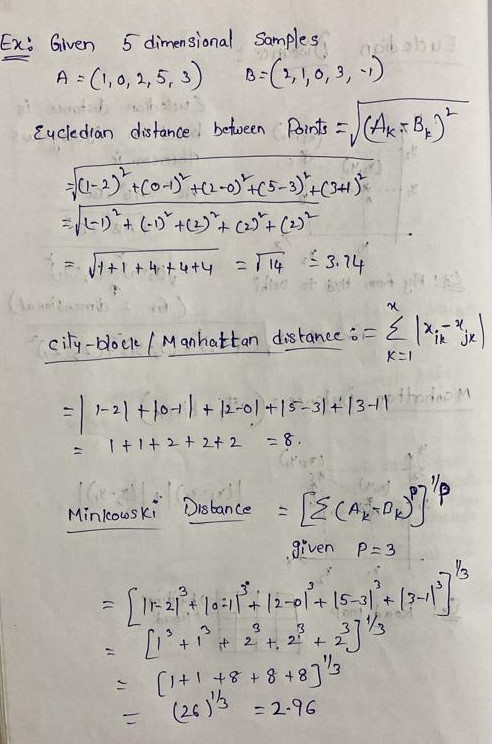 Ex: Given 5 dimensional Samples
A = (1, 0, 2, 5, 3) B = (2, 1, 0, 3, -1)
Eucledian distance between Points = √(A_k - B_k)²
= √(1-2)² + (0-1)² + (2-0)² + (5-3)² + (3+1)²
= √(-1)² + (-1)² + (2)² + (2)² + (2)²
= √1+1+4+4+4 = √14 = 3.74
City-block / Manhattan distance := Σ_{k=1}^{x} |x_ik - x_jk|
= |1-2| + |0-1| + |2-0| + |5-3| + |3-1|
= 1+1+2+2+2 = 8.
Minkowski Distance = [Σ(A_k - B_k)^p]^1/p
given P=3
= [|1-2|³ + |0-1|³ + |2-0|³ + |5-3|³ + |3-1|³]^1/3
= [1³ + 1³ + 2³ + 2³ + 2³]^1/3
= [1+1+8+8+8]^1/3
= (26)^1/3 = 2.96